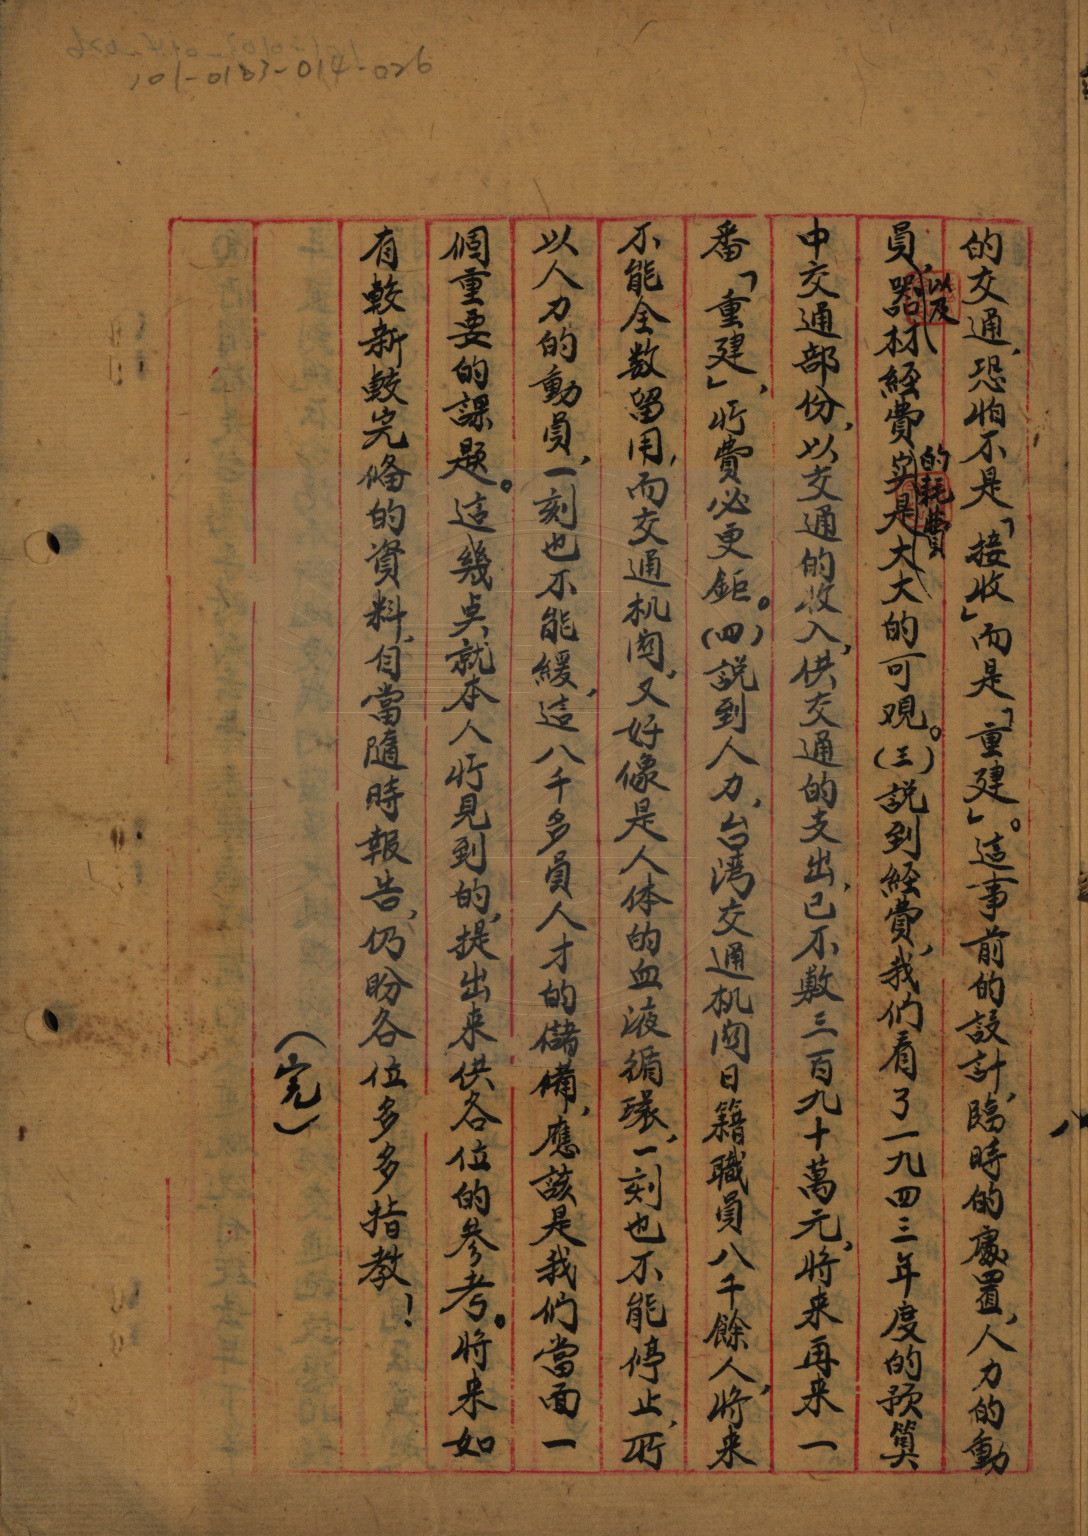 101-0183-014-026
的交通,恐怕不是「接收」而是「重建」。這事前的設計,臨時的處置,人力的動
員,器材以及經費的耗費实是大大的可观。(三)説到經費,我们看了一九四三年度的預算
中交通部份,以交通的收入,供交通的支出,已不敷三百九十萬元,將来再来一
番「重建」,所費必更鉅。(四)説到人力,台湾交通机関日籍職員八千餘人,將来
不能全数留用,而交通机関,又好像是人体的血液循環,一刻也不能停止,所
以人力的動員,一刻也不能緩,這八千多員人才的儲備,應該是我们當面一
個重要的課題。這幾点,就本人所見到的,提出来供各位的參考。將来如
有較新較完俻的資料,自當隨時報告,仍盼各位多多指教!
(完)